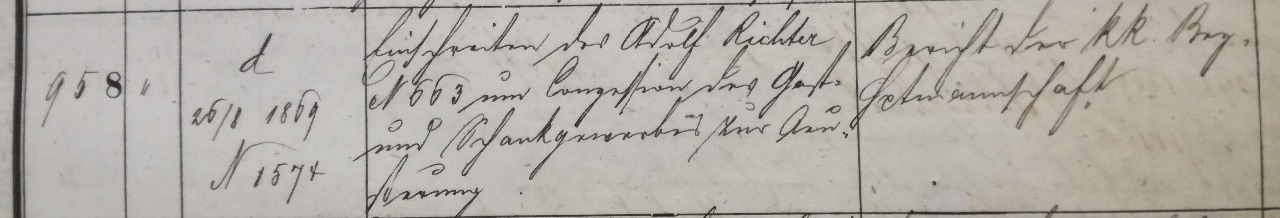 958 "
d
26/8 1869
N 1574
Einschreiten des Adolf Richter
N 663 um Conzession des Gast-
und Schankgewerbes zur Aeu-
sserung
Bericht der kk. Bez.
Hptmannschaft